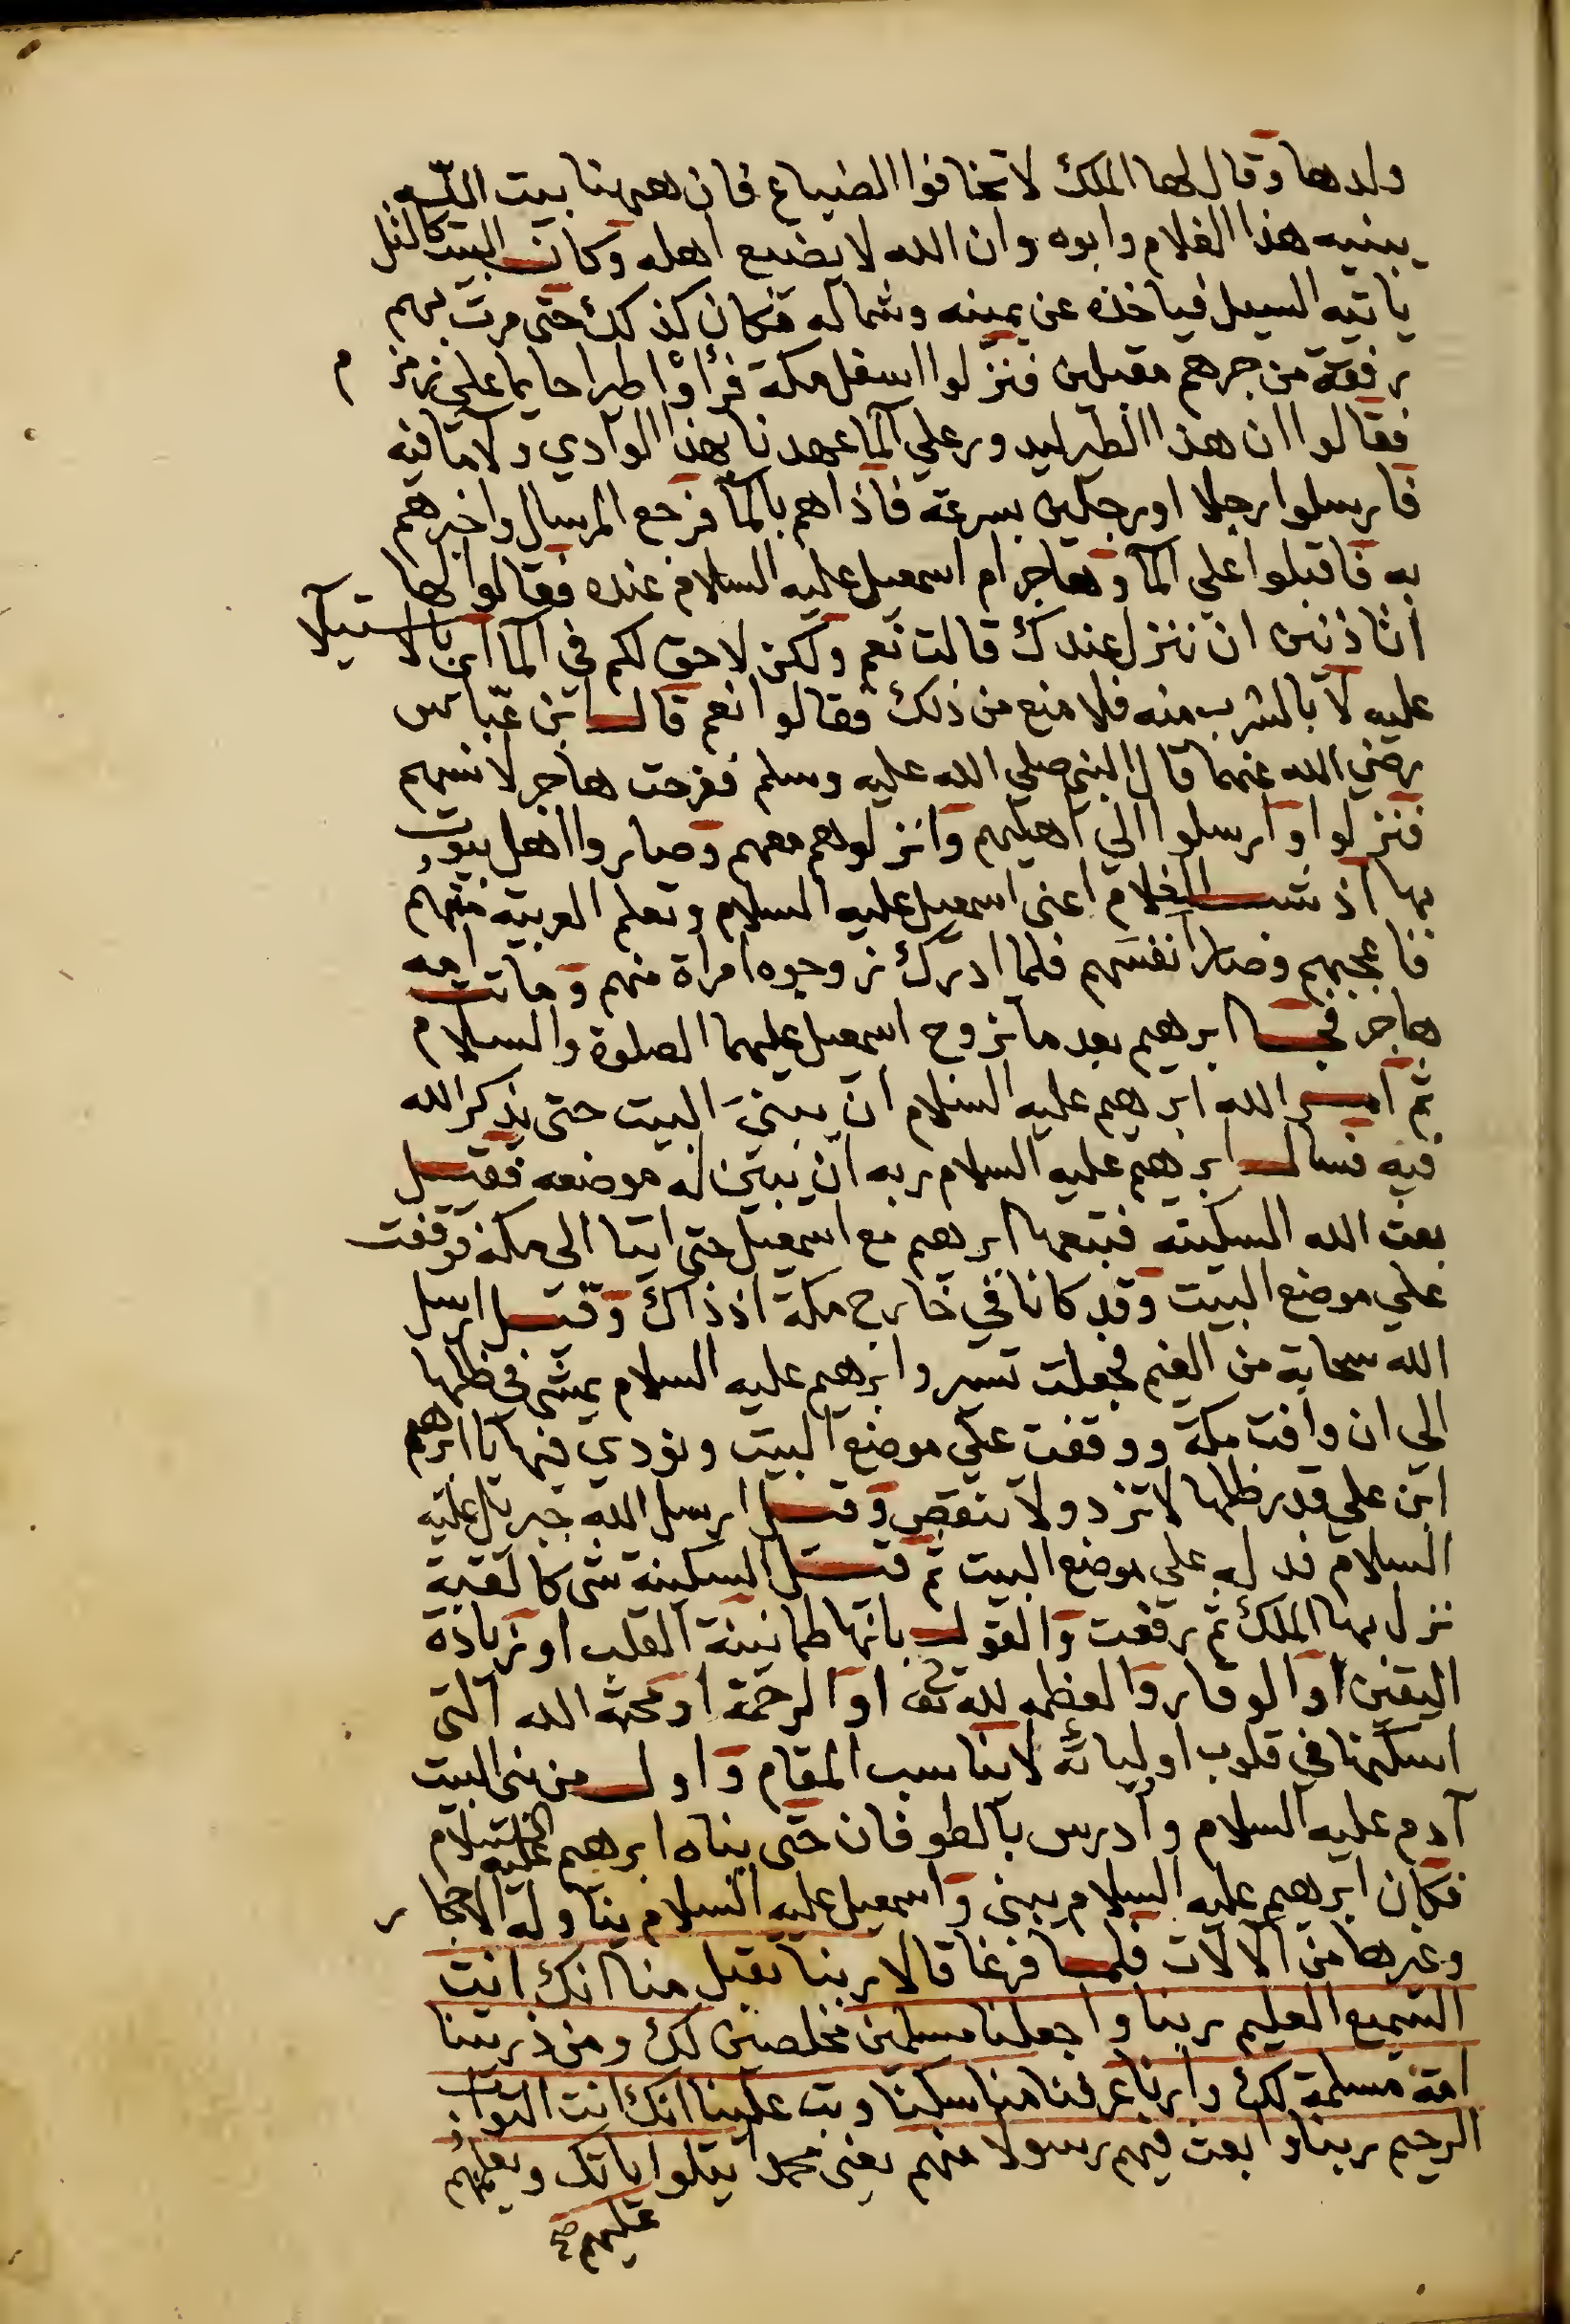 ولدها وقال لها الملك لا تخافوا الضياع فان ههنا بيت الله
يبنيه هذا الغلام وابوه وان الله لا يضيع اهله وكان البيت كالتل
ياتيه السيل فياخذه عن يمينه وشماله فكان كذلك حتى مرت بهم
رفقة من جرهم مقبلين فنزلوا اسفل مكة فرأوا طيرا حايما على زمزم
فقالوا ان هذا الطير ليدور على الما عهدنا بهذا الوادي ولا ما فيه
فارسلوا رجلا او رجلين بسرعة فاذا هم بالما فرجع المرسال واخبرهم
به فاقبلوا على الما وهاجر ام اسمعيل عليه السلام عنده فقالوا لها
اتاذنين ان ننزل عندك قالت نعم ولكن لا حق لكم في الما اي بالاستيلآ
عليه لا بالشرب منه فلا منع من ذلك فقالوا نعم قال ابن عباس
رضي الله عنهما قال النبي صلى الله عليه وسلم ففرحت هاجر لانسهم
فنزلوا وارسلوا الى اهليهم وانزلوهم معهم وصاروا اهل بيوت
بها اذ شب الغلام اعني اسمعيل عليه السلام وتعلم العربية منهم
فاعجبهم وصار انفسهم فلما ادرك زوجوه امراة منهم وماتت امه
هاجر فجا ابرهيم بعد ما تزوج اسمعيل عليهما الصلوة والسلام
ثم امر الله ابرهيم عليه السلام ان يبني البيت حتى يذكر الله
فيه فسال ابرهيم عليه السلام ربه ان يبين له موضعه فقيل
بعث الله السكينة فتبعها ابرهيم مع اسمعيل حتى اتيا الى مكة فوقفت
على موضع البيت وقد كانا في خارج مكة اذ ذاك وقيل ارسل
الله سحابة من الغيم فجعلت تسير وابرهيم عليه السلام يمشي في ظلها
الى ان وافت مكة ووقفت على موضع البيت ونودي منها يا ابرهيم
ابن على قدر ظلها لا تزد ولا تنقص وقيل ارسل الله جبريل عليه
السلام فدله على موضع البيت ثم قيل السكينة شى كالقبة
نزل بها الملك ثم رفعت والقول بانها طمانينة القلب او زيادة
اليقين او الوقار والعظمه لله تع او الرحمة او محبة الله التى
اسكنها في قلوب اوليائه لا يناسب المقام واول من بنى البيت
آدم عليه السلام واندرس بالطوفان حتى بناه ابرهيم عليه السلام
فكان ابرهيم عليه السلام يبني واسمعيل عليه السلام يناوله الاحجار
وغيرها من الآلات فلما فرغا قالا ربنا تقبل منا انك انت
السميع العليم ربنا واجعلنا مسلمين مخلصين لك ومن ذريتنا
امة مسلمة لك وارنا عرفنا مناسكنا وتب علينا انك انت التواب
الرحيم ربنا وابعث فيهم رسولا منهم يعني محمدا يتلوا اياتك ويعلمهم
عليهم صح